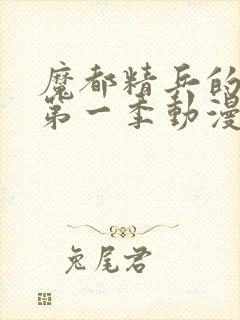 魔都精兵的
第一季動漫
兔尾君